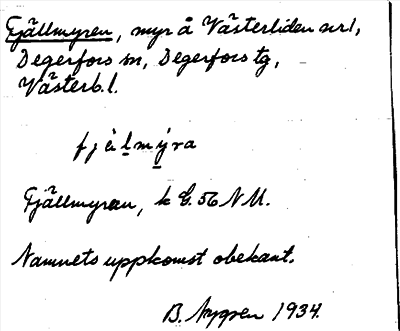 Fjällmyren, myr å Västerliden nr 1,
Degerfors sn, Degerfors tg,
Västerb. l.
fjälmýra
Fjällmyran, k G. 56 NM.
Namnets uppkomst obekant.
B. Nygren 1934.